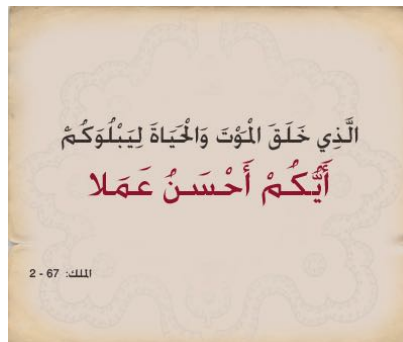 الَّذِي خَلَقَ الْمَوْتَ وَالْحَيَاةَ لِيَبْلُوَكُمْ
أَيُّكُمْ أَحْسَنُ عَمَلا
الملك: 67 - 2